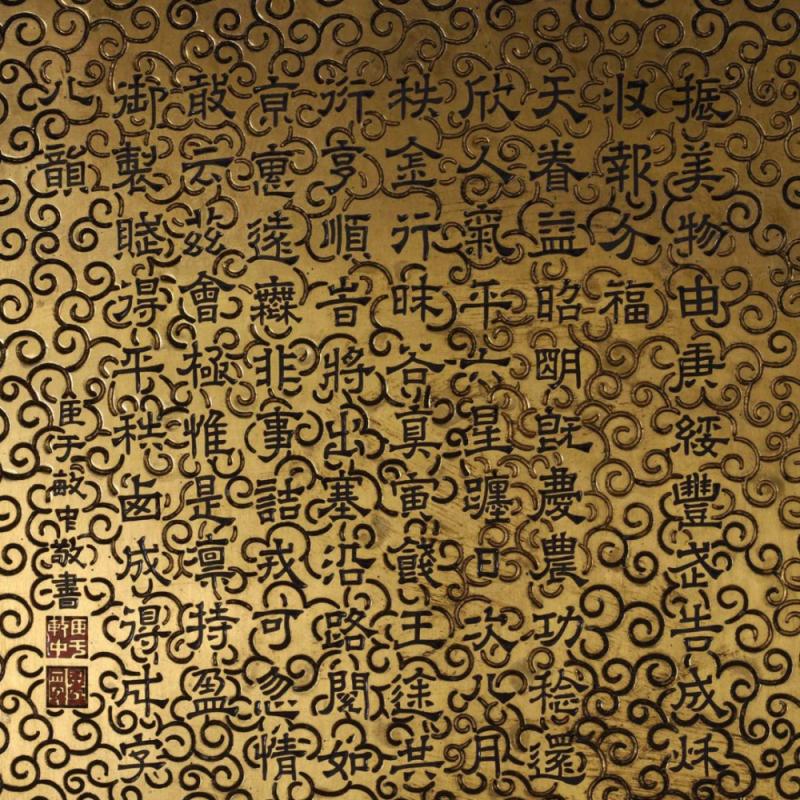 振美物由庚綏豐歲告成秌
收報介福
天眷益昭明旣慶農功稔還
欣人氣平六星躔日次八月
秩金行昧谷真寅餞王途共
衍亨順旹將出塞沿路閱如
京惠遠靡非事詰戎可忽情
敢云茲會極惟是凛持盈
御製賦得平秩卥成得成字
八韻
臣于敏中敬書